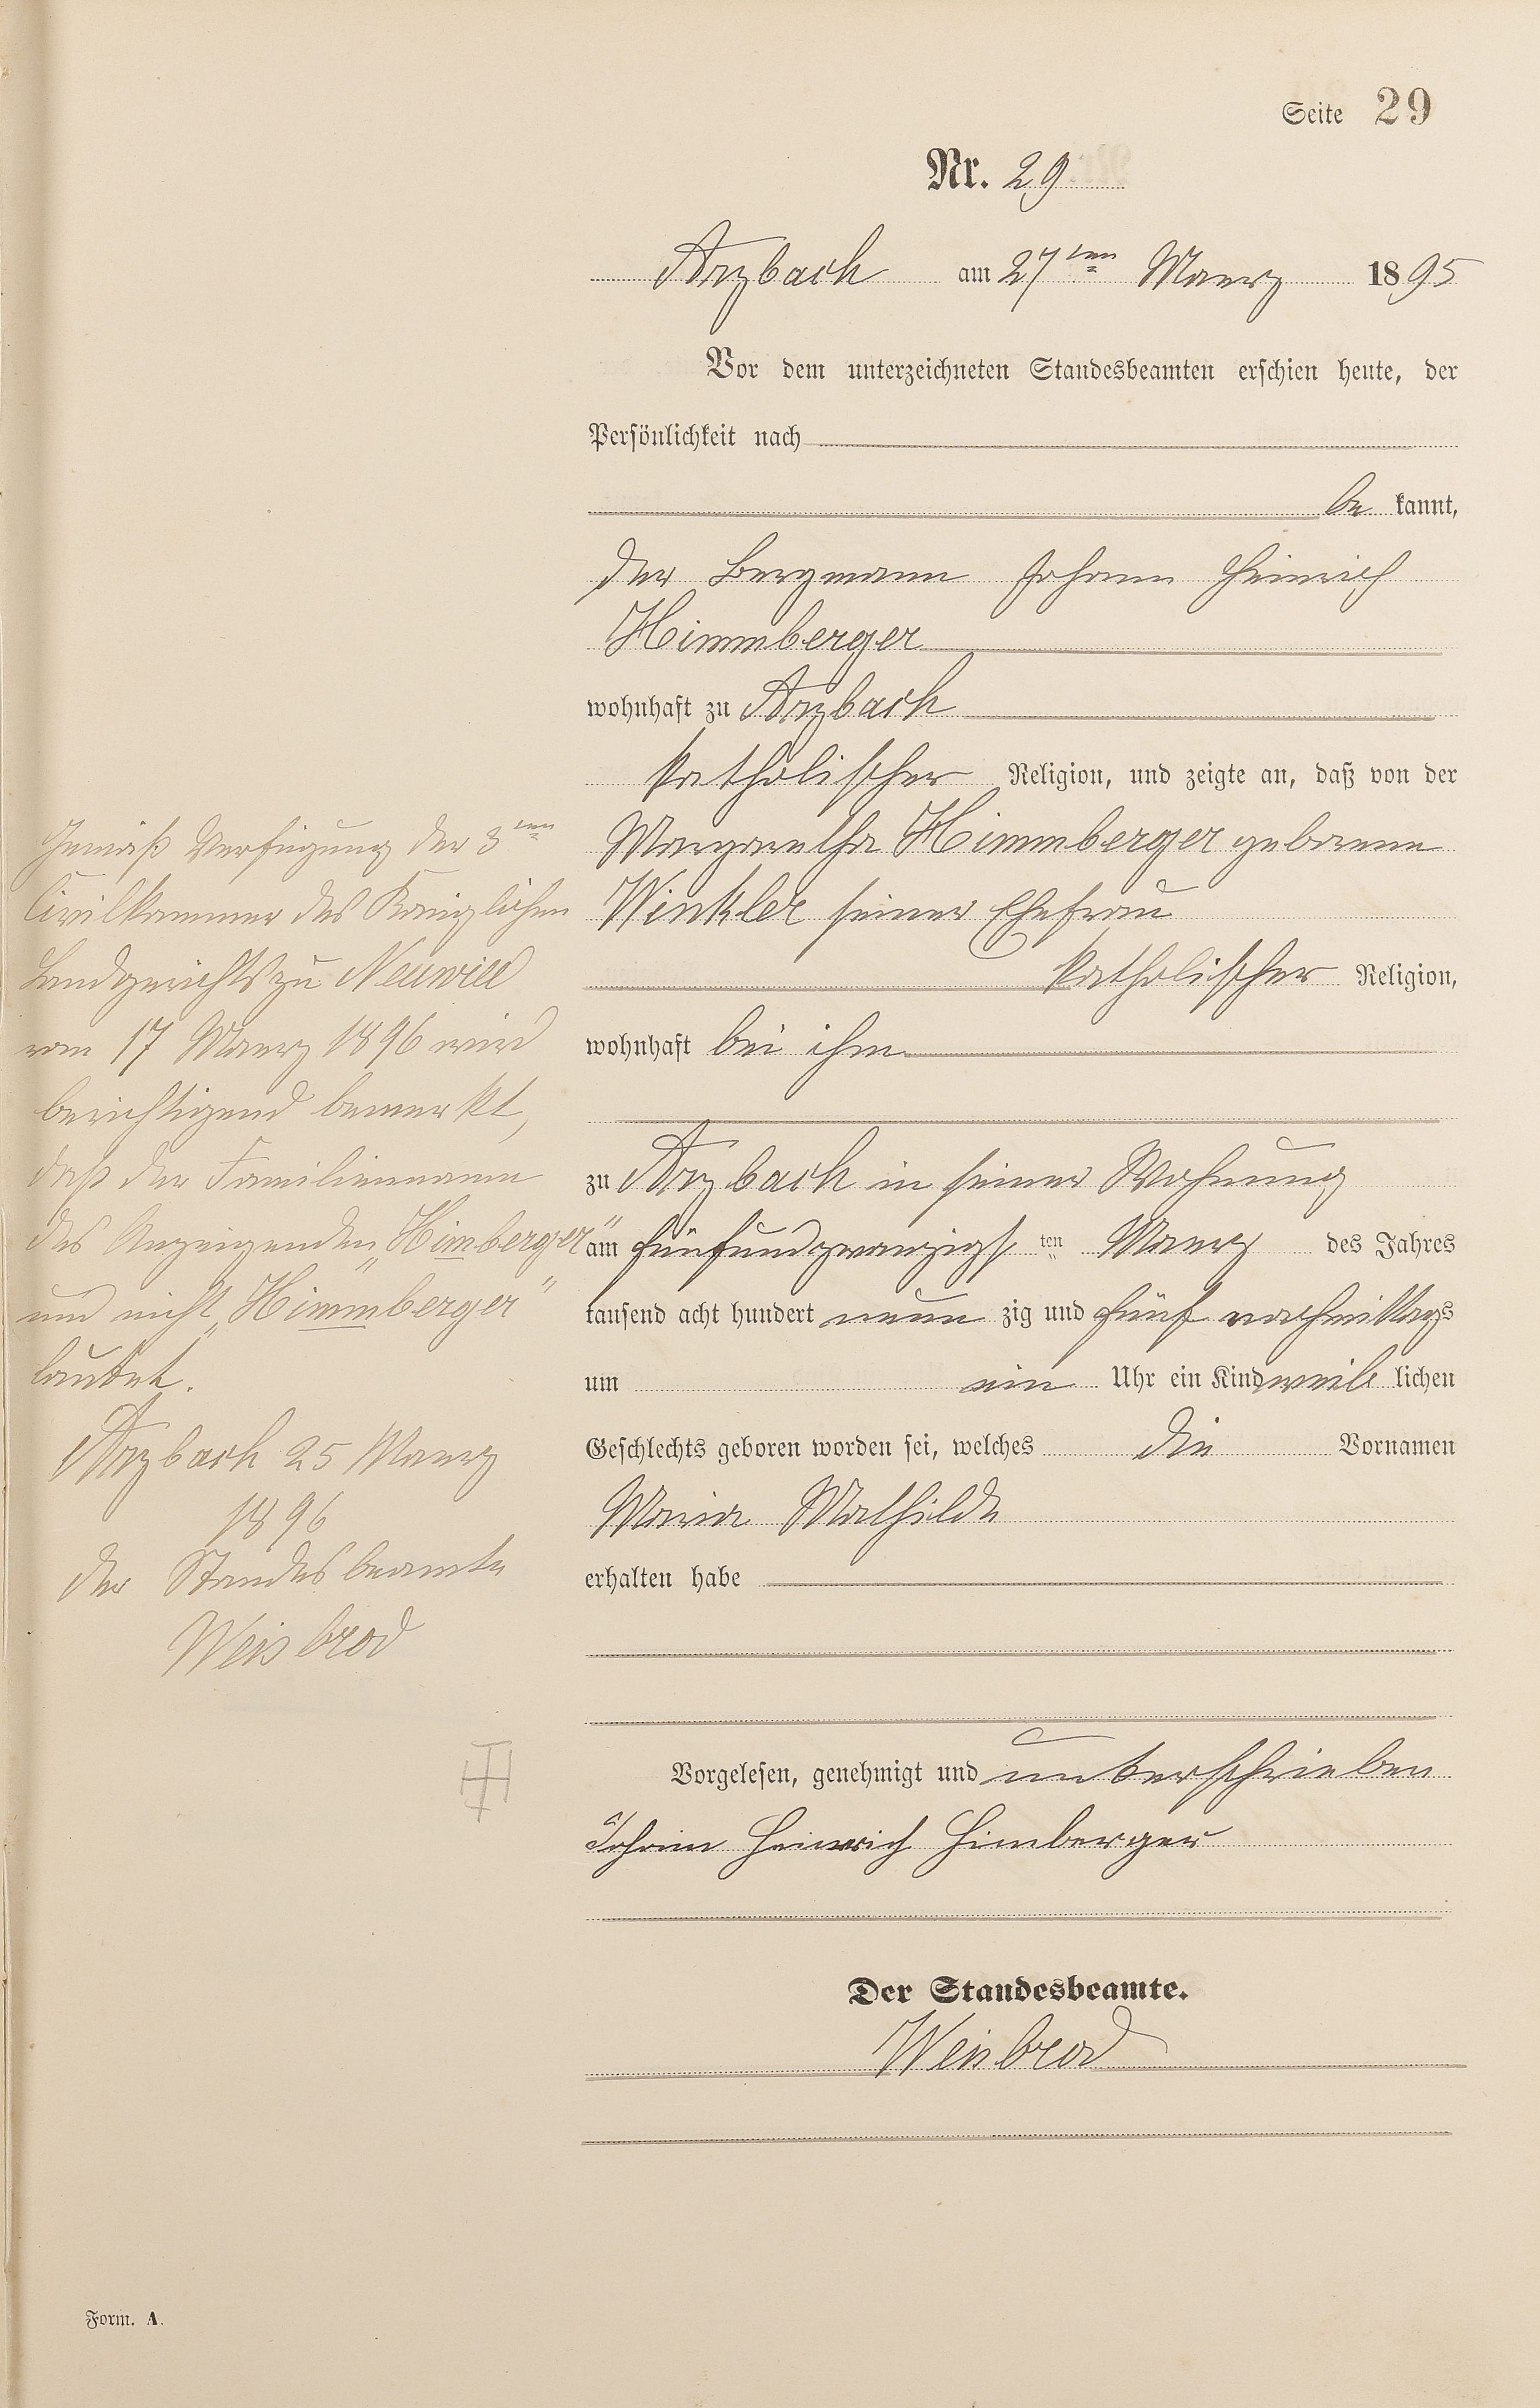 Seite 29
Nr. 29
Arzbach am 27ten Maerz 1895
Vor dem unterzeichneten Standesbeamten erschien heute, der
Persönlichkeit nach
be kannt,
der Bergmann Johann Heinrich
Himmberger
wohnhaft zu Arzbach
katholischer Religion, und zeigte an, daß von der
Margaretha Himmberger geborene
Winkler seiner Ehefrau
katholischer Religion,
wohnhaft bei ihm
zu Arzbach in seiner Wohnung
am fünfundzwanzigs ten Maerz des Jahres
tausend acht hundert neun zig und fünf nachmittags
um ein Uhr ein Kind weib lichen
Geschlechts geboren worden sei, welches die Vornamen
Maria Mathilde
erhalten habe
Vorgelesen, genehmigt und unterschrieben
Johann Heinrich Himberger
Der Standesbeamte.
Weisbrod
Gemäß Verfügung der 3ten
Civilkammer des Königlichen
Landgerichts zu Neuwied
vom 17 Maerz 1896 wird
berichtigend bemerkt,
daß der Familienname
des Anzeigenden „Himberger“
und nicht „Himmberger“
lautet.
Arzbach 25 Maerz
1896
Der Standesbeamte
Weisbrod
Form. A.